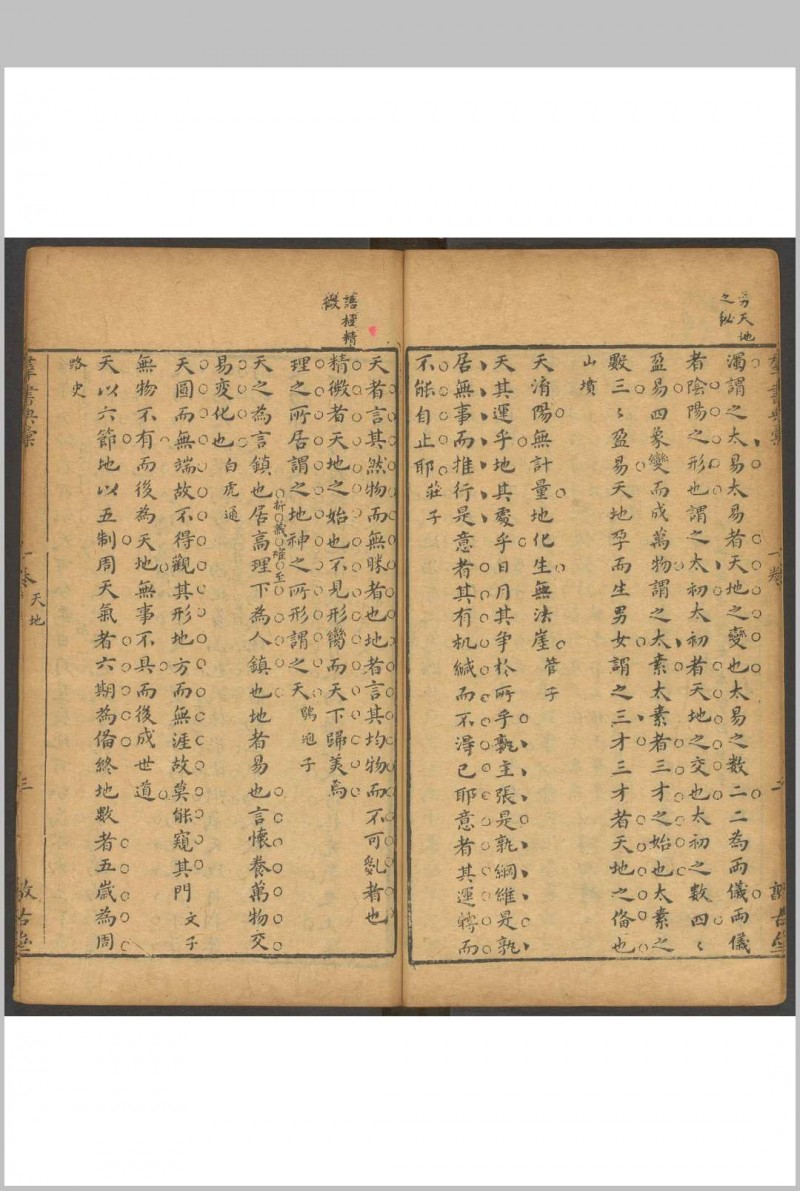 天地
之秘
濁謂之太易太易者天地之變也太易之數二二為兩儀兩儀
者陰陽之形也謂之太初太初者天地之交也太初之數四〻
盈易四象變而成萬物謂之太素太素者三才之始也太素之
數三〻盈易天地孕而生男女謂之三才三才者天地之俻也
山墳
天淯陽無計量地化生無法崖管子
天其運乎地其處乎日月其爭於所乎孰主張是孰綱維是孰
居無事而推行是意者其有机緘而不得已耶意者其運轉而
不能自止耶莊子
群書典彙
一卷
語極精
微
天者言其然物而無勝者也地者言其均物而不可亂者也
精微者天地之始也不見形臠而天下歸美焉
理之所居謂之地神之所形謂之天鶡冠子
析義唯至
天之為言鎮也居高理下為人鎮也地者易也言懷養萬物交
易變化也白虎通
天圓而無端故不得觀其形地方而無涯故莫能窺其門文子
無物不有而後為天地無事不具而後成世道
天以六節地以五制周天氣者六期為俻終地數者五歲為周
路史
群書典彙
一卷
天地
三
敦古堂